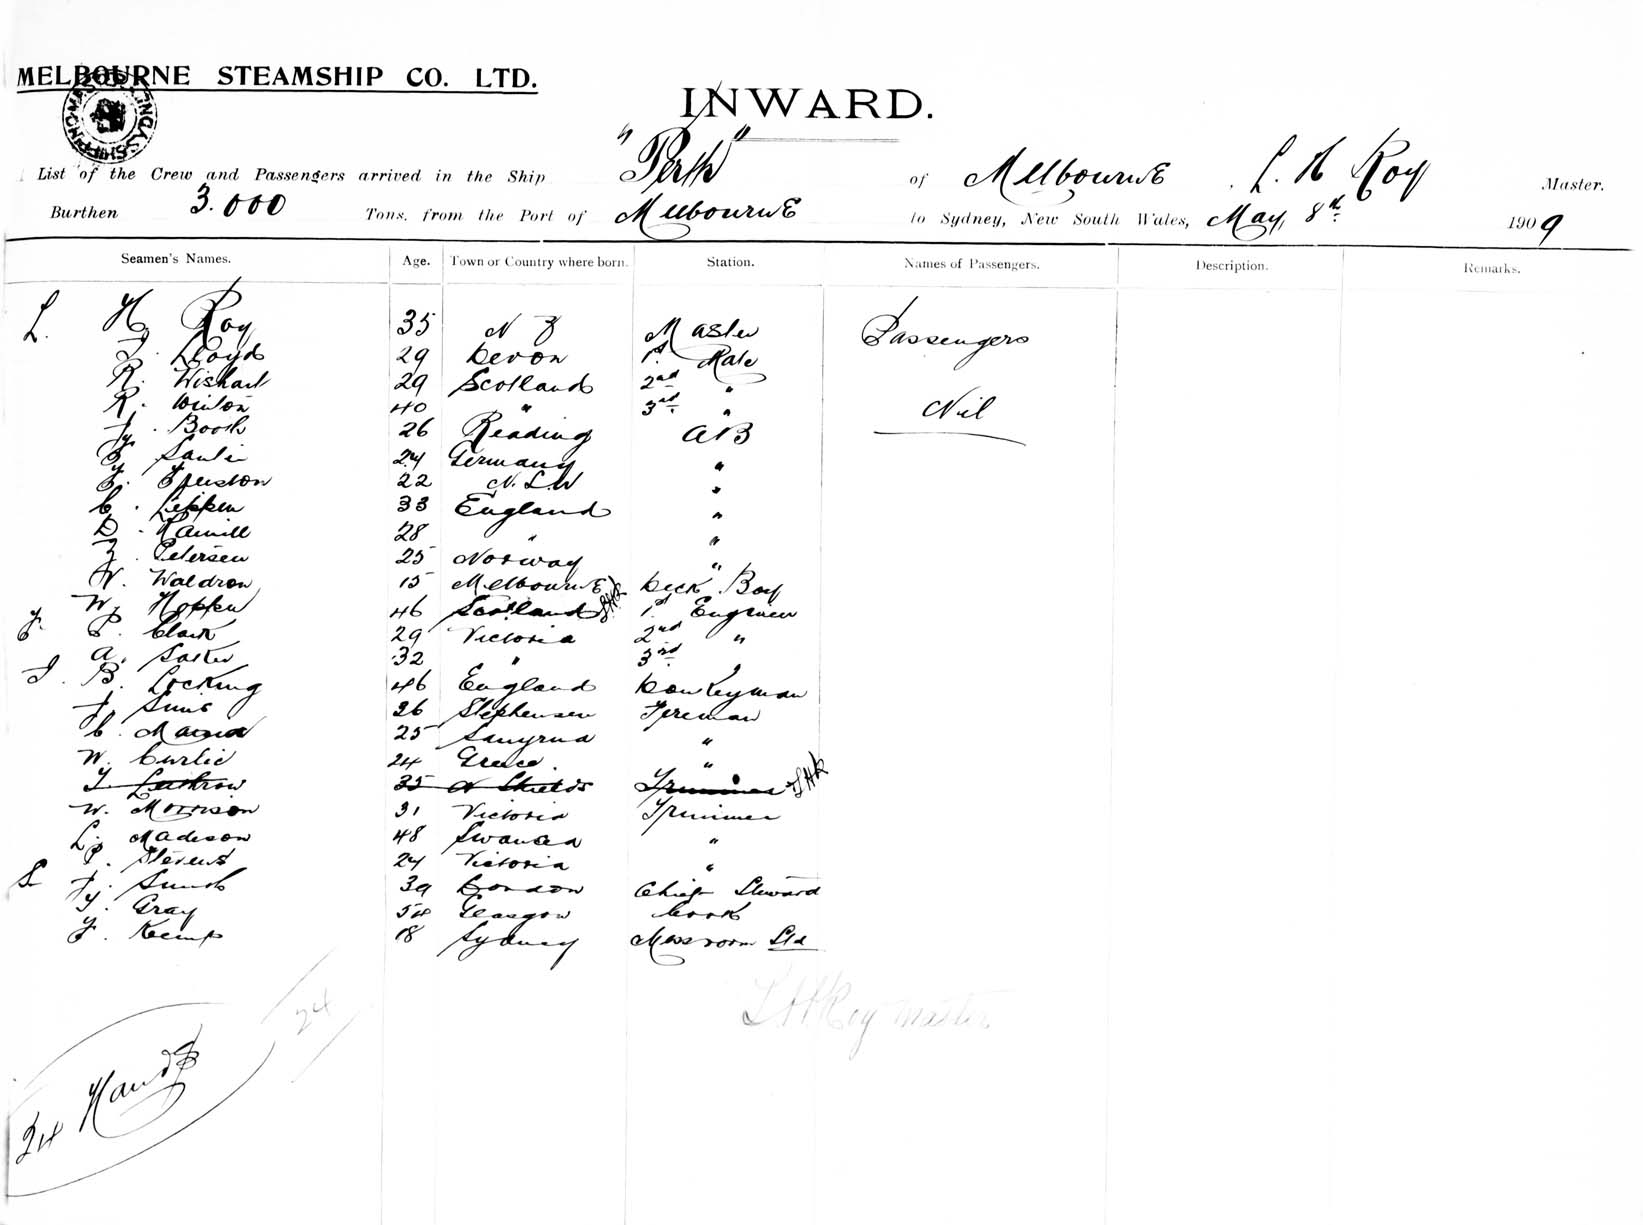 MELBOURNE STEAMSHIP CO. LTD.
INWARD.
List of the Crew and Passengers arrived in the Ship "Perth" of Melbourne L. H Roy Master.
Burthen 3.000 Tons, from the Port of Melbourne to Sydney, New South Wales, May 8th 1909
Seamen's Names. Age. Town or Country where born. Station. Names of Passengers. Description. Remarks.
L. H Roy 35 N Z Master Passengers
Lloyd 29 Devon 1st Mate
R. Wishart 29 Scotland 2nd "
R. Winton 40 " 3rd " Nil
Booth 26 Reading AB
24 Germany "
22 N.S.W "
C. 33 England "
D. 28 " "
Petersen 25 Norway "
W. Waldron 15 Melbourne Deck Boy
W. 46 Scotland 1st Engineer
P. Clark 29 Victoria 2nd "
A. 32 " 3rd "
J. B. Locking 46 England Donkeyman
J. Sims 26 Fireman
C. 25 "
W. 24 Greece "
35 N Shields Trimmer LHR
W. Morrison 31 Victoria Trimmer
L. Madison 48 Swansea "
P. Stevens 24 Victoria "
S 39 London Chief Steward
Gray 54 Glasgow Cook
Kemp 18 Sydney Messroom Std
L H Roy master
24
24 Hands